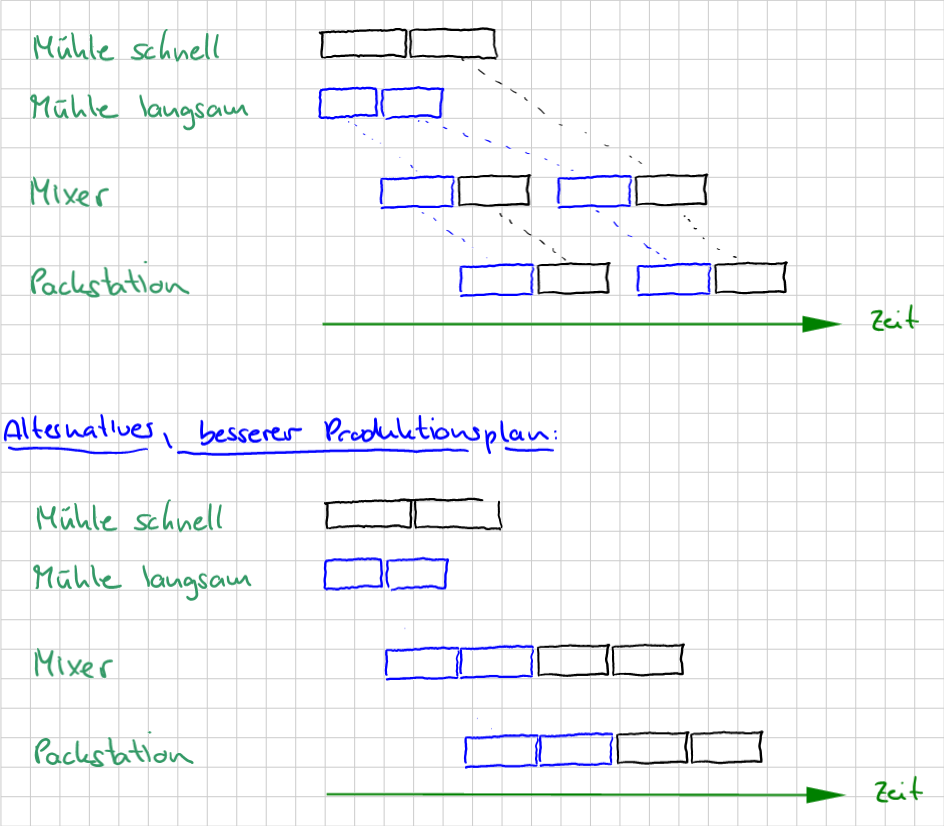 Mühle schnell
Mühle langsam
Mixer
Packstation
Zeit
Alternatives, besserer Produktionsplan:
Mühle schnell
Mühle langsam
Mixer
Packstation
Zeit